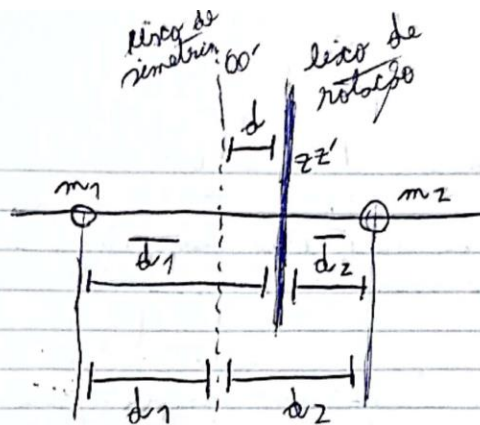 eixo de
simetria
OO'
eixo de
rotação
d
ZZ'
m1
m2
d̅1
d̅2
d1
d2